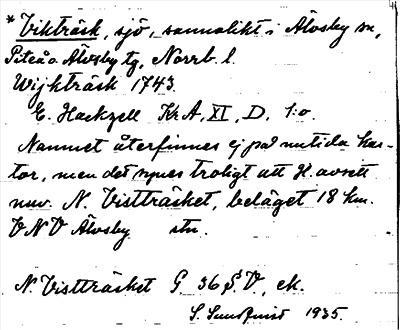 * Vikträsk, sjö, sannolikt i Älvsby sn,
Piteå o. Älvsby tg, Norrb. l.
Wijkträsk 1743.
E. Hackzell KrA, XI, D, 1:o.
Namnet återfinnes ej på nutida kar-
tor, men det synes troligt att H. avsett
nuv. N. Vistträsket, beläget 18 km.
VNV Älvsby stn.
N. Vistträsket G 36 S.V., ek.
S. Sundquist 1935.